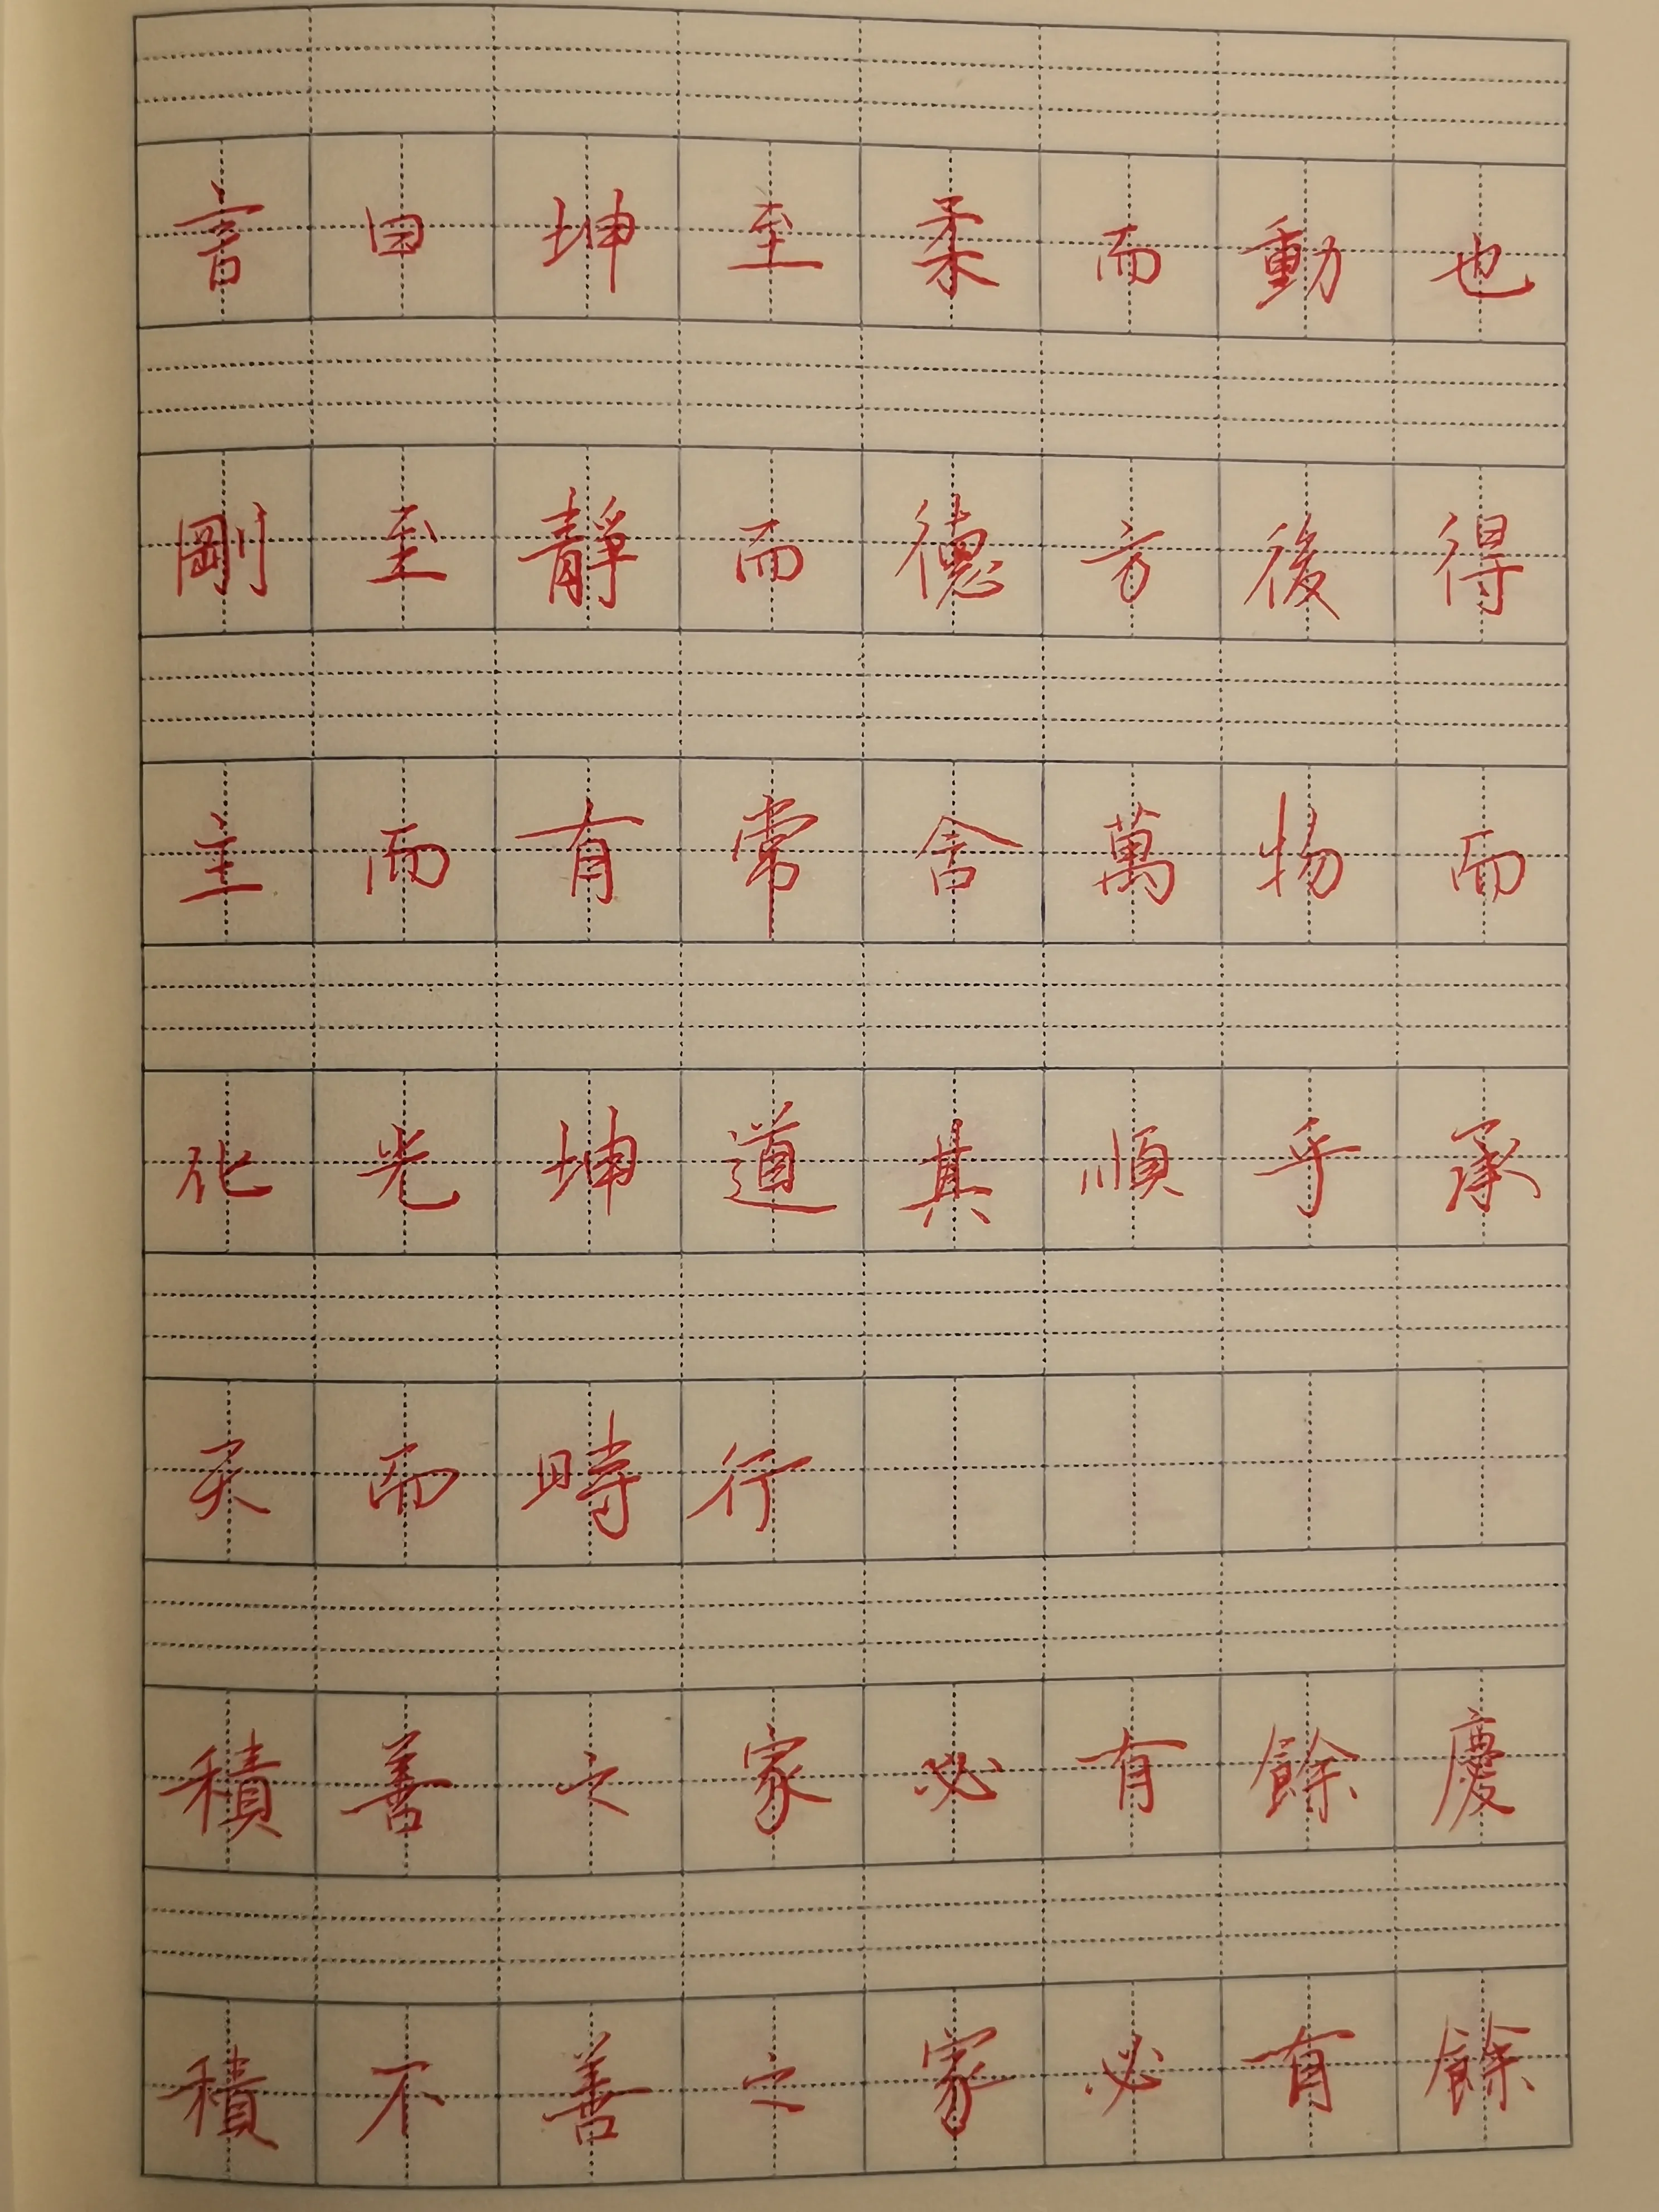 言曰坤至柔而動也
剛至靜而德方後得
主而有常含萬物而
化光坤道其順乎承
天而時行
積善之家必有餘慶
積不善之家必有餘